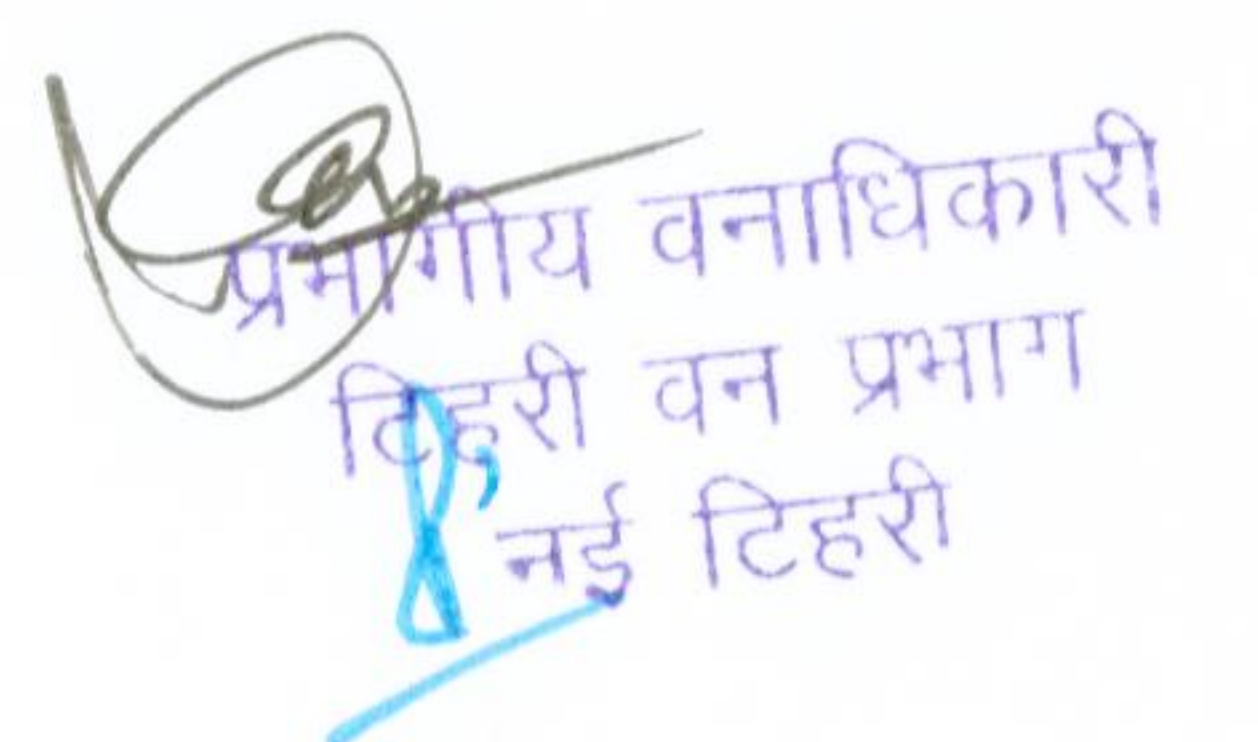 प्रभागीय वनाधिकारी
टिहरी वन प्रभाग
नई टिहरी